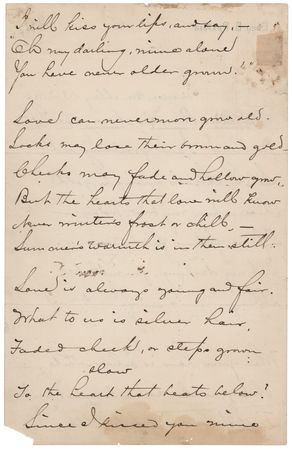 "I will kiss your lips, and say, —
"Oh my darling, mine alone
You have never older grown!"
Love can never more grow old.
Locks may lose their brown and gold
Cheeks may fade and hollow grow,
But the hearts that love will know
Never winter's frost or chill, —
Summer's warmth is in them still.
Love is always young and fair.
What to us is silver hair,
Faded cheek, or steps grown
slow
To the heart that beats below?
Since I kissed you mine